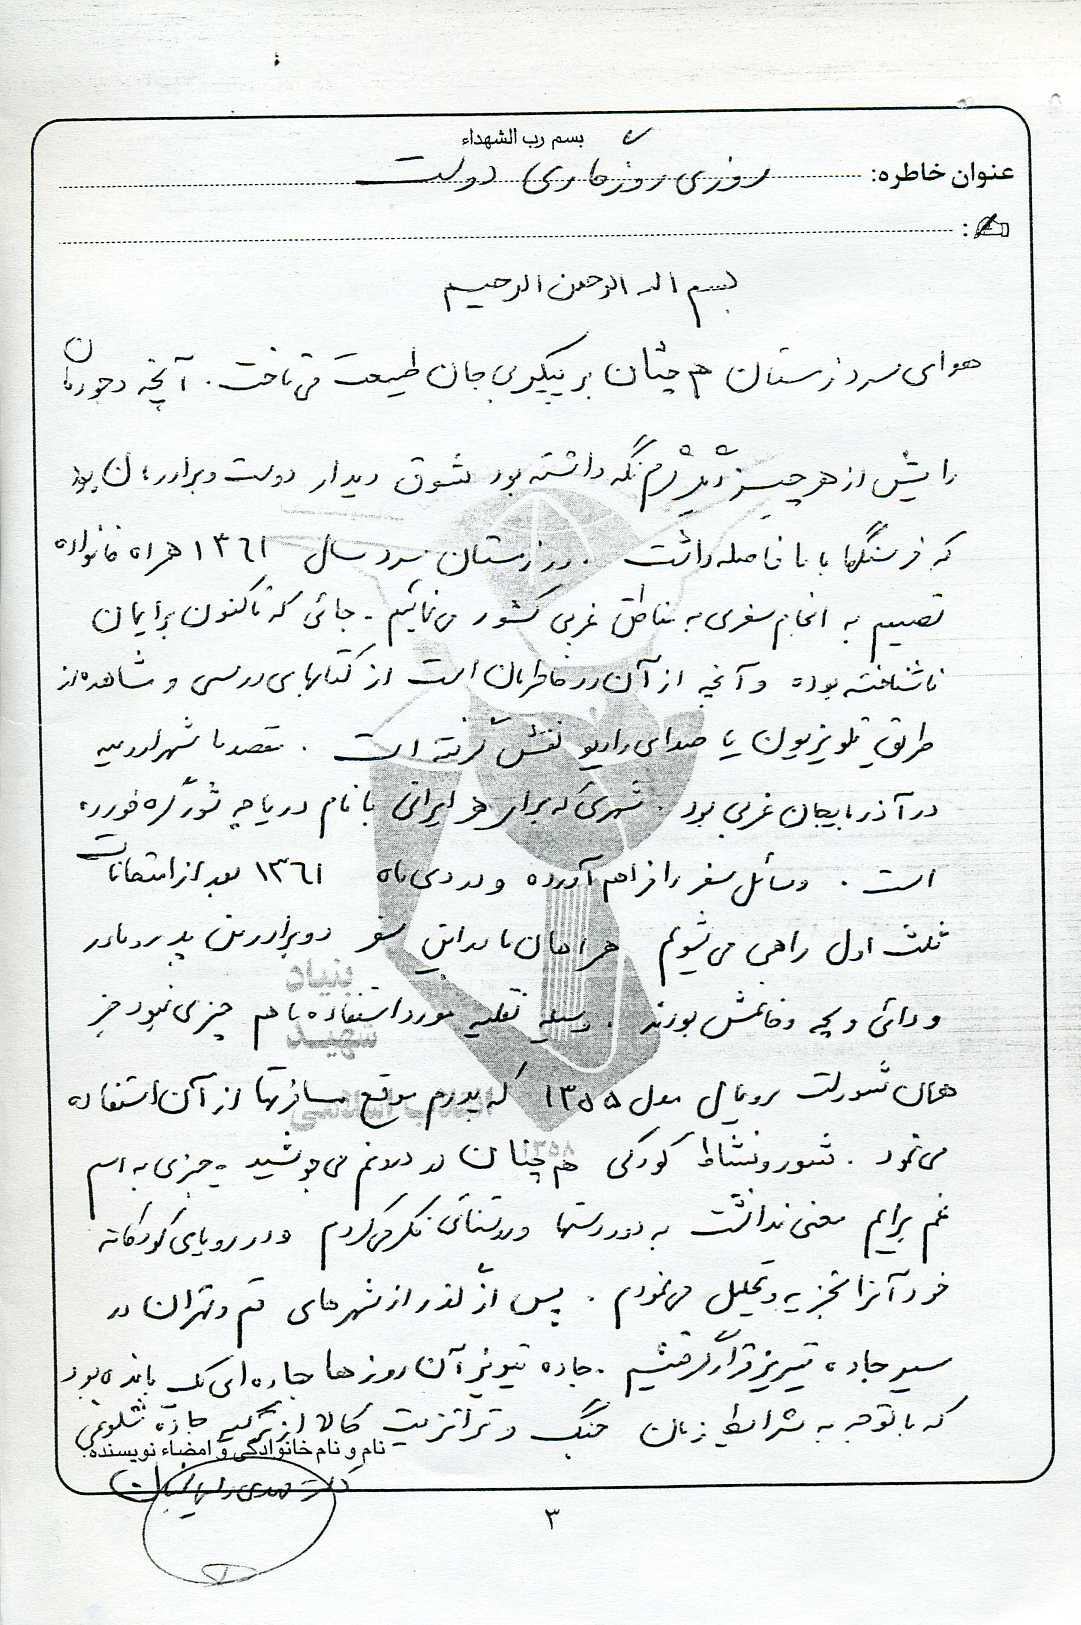 بسم رب الشهداء
عنوان خاطره: روزی روزگاری دولت
:
بسم الله الرحمن الرحیم
هوای سرد زمستان هم چنان بر پیکر بی جان طبیعت می تاخت . آنچه وجودمان
را بیش از هر چیز دیگر گرم نگه داشته بود شوق دیدار دوست و برادرمان بود
که فرسنگها با ما فاصله داشت . در زمستان سرد سال ۱۳۶۱ همراه خانواده
تصمیم به انجام سفری به مناطق غربی کشور می نمائیم . جائی که تاکنون برایمان
ناشناخته بوده و آنچه از آن در خاطرمان است از کتابهای درسی و مشاهده از
طریق تلویزیون یا صدای رادیو نقش گرفته است . مقصد ما شهر ارومیه
در آذربایجان غربی بود . شهری که برای هر ایرانی با نام دریاچه شور گره خورده
است . وسائل سفر را فراهم آورده و در دی ماه ۱۳۶۱ بعد از امتحانات
ثلث اول راهی می شویم همراهان ما در این سفر دو برادرم پدر و مادر
و دائی و بچه و خانمش بودند . وسیله نقلیه مورد استفاده ما هم چیزی نبود جز
همان شورلت رویال مدل ۱۳۵۵ که پدرم موقع مسافرتها از آن استفاده
می نمود . شور و نشاط کودکی هم چنان در دلم می جوشید . چیزی به اسم
غم برایم معنی نداشت به دوردستها و روشنائی فکر می کردم و در رویای کودکانه
خود آنرا تجزیه و تحلیل می نمودم . پس از گذر از شهرهای قم و تهران در
مسیر جاده تبریز قرار گرفتیم . جاده تبریز آن روزها جاده ای یک بانده بود
که با توجه به شرایط زمان جنگ و ترانزیت کالا از ترکیه جاده شلوغی
نام و نام خانوادگی و امضاء نویسنده:
۳
بنیاد
شهید
۱۳۵۸